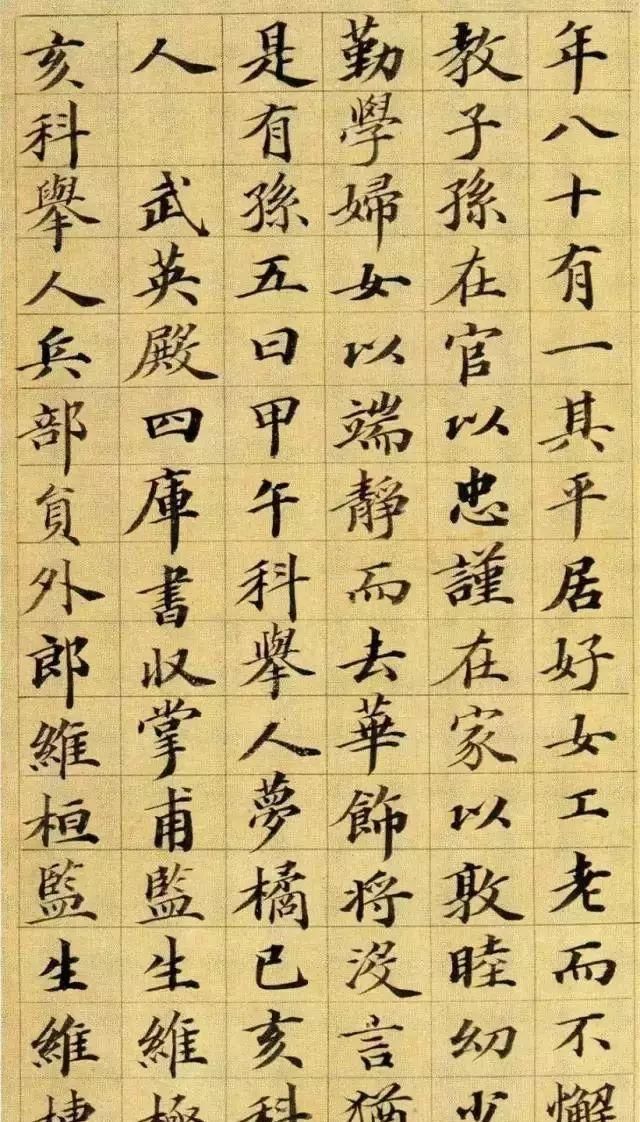 年八十有一其平居好女工老而不懈
教子孫在官以忠謹在家以敦睦幼少
勤學婦女以端靜而去華飾将没言猶
是有孫五曰甲午科舉人夢橘已亥科
人　武英殿四庫書収掌甫監生維極
亥科舉人兵部員外郎維桓監生維